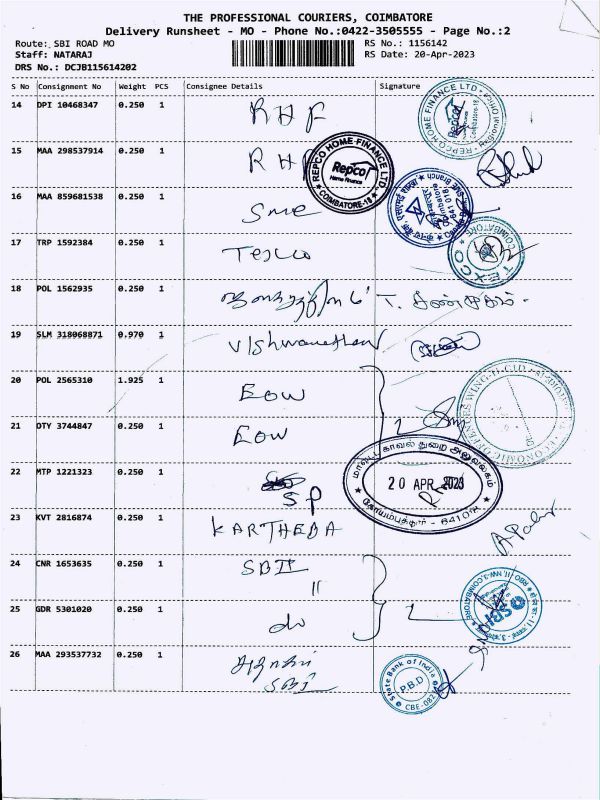 THE PROFESSIONAL COURIERS, COIMBATORE
Delivery Runsheet - MO - Phone No.:0422-3505555 - Page No.:2
Route: SBI ROAD MO RS No.: 1156142
Staff: NATARAJ RS Date: 20-Apr-2023
DRS No.: DCJB115614202
S No Consignment No Weight PCS Consignee Details Signature
14 DPI 10468347 0.250 1 RHF
REPCO HOME FINANCE LTD
Repco
Coimbatore-18
15 MAA 298537914 0.250 1 RHF
REPCO HOME FINANCE LTD
Repco
Home Finance
COIMBATORE-18
16 MAA 859681538 0.250 1 Sme
SME Branch
Coimbatore
641 018
17 TRP 1592384 0.250 1 Texco
COIMBATORE
TEXCO
18 POL 1562935 0.250 1
19 SLM 318068871 0.970 1 Vishwanathan
20 POL 2565310 1.925 1 EOW
ECONOMIC OFFENCES WING-II, CID
21 OTY 3744847 0.250 1 EOW
மாவட்ட காவல் துறை அலுவலகம்
20 APR 2023
கோயம்புத்தூர் - 641018
22 MTP 1221323 0.250 1 SP
23 KVT 2816874 0.250 1 KARTHEBA
24 CNR 1653635 0.250 1 SBI
II
SBI
25 GDR 5301020 0.250 1 do
26 MAA 293537732 0.250 1
SBI
State Bank of India
P.B.D